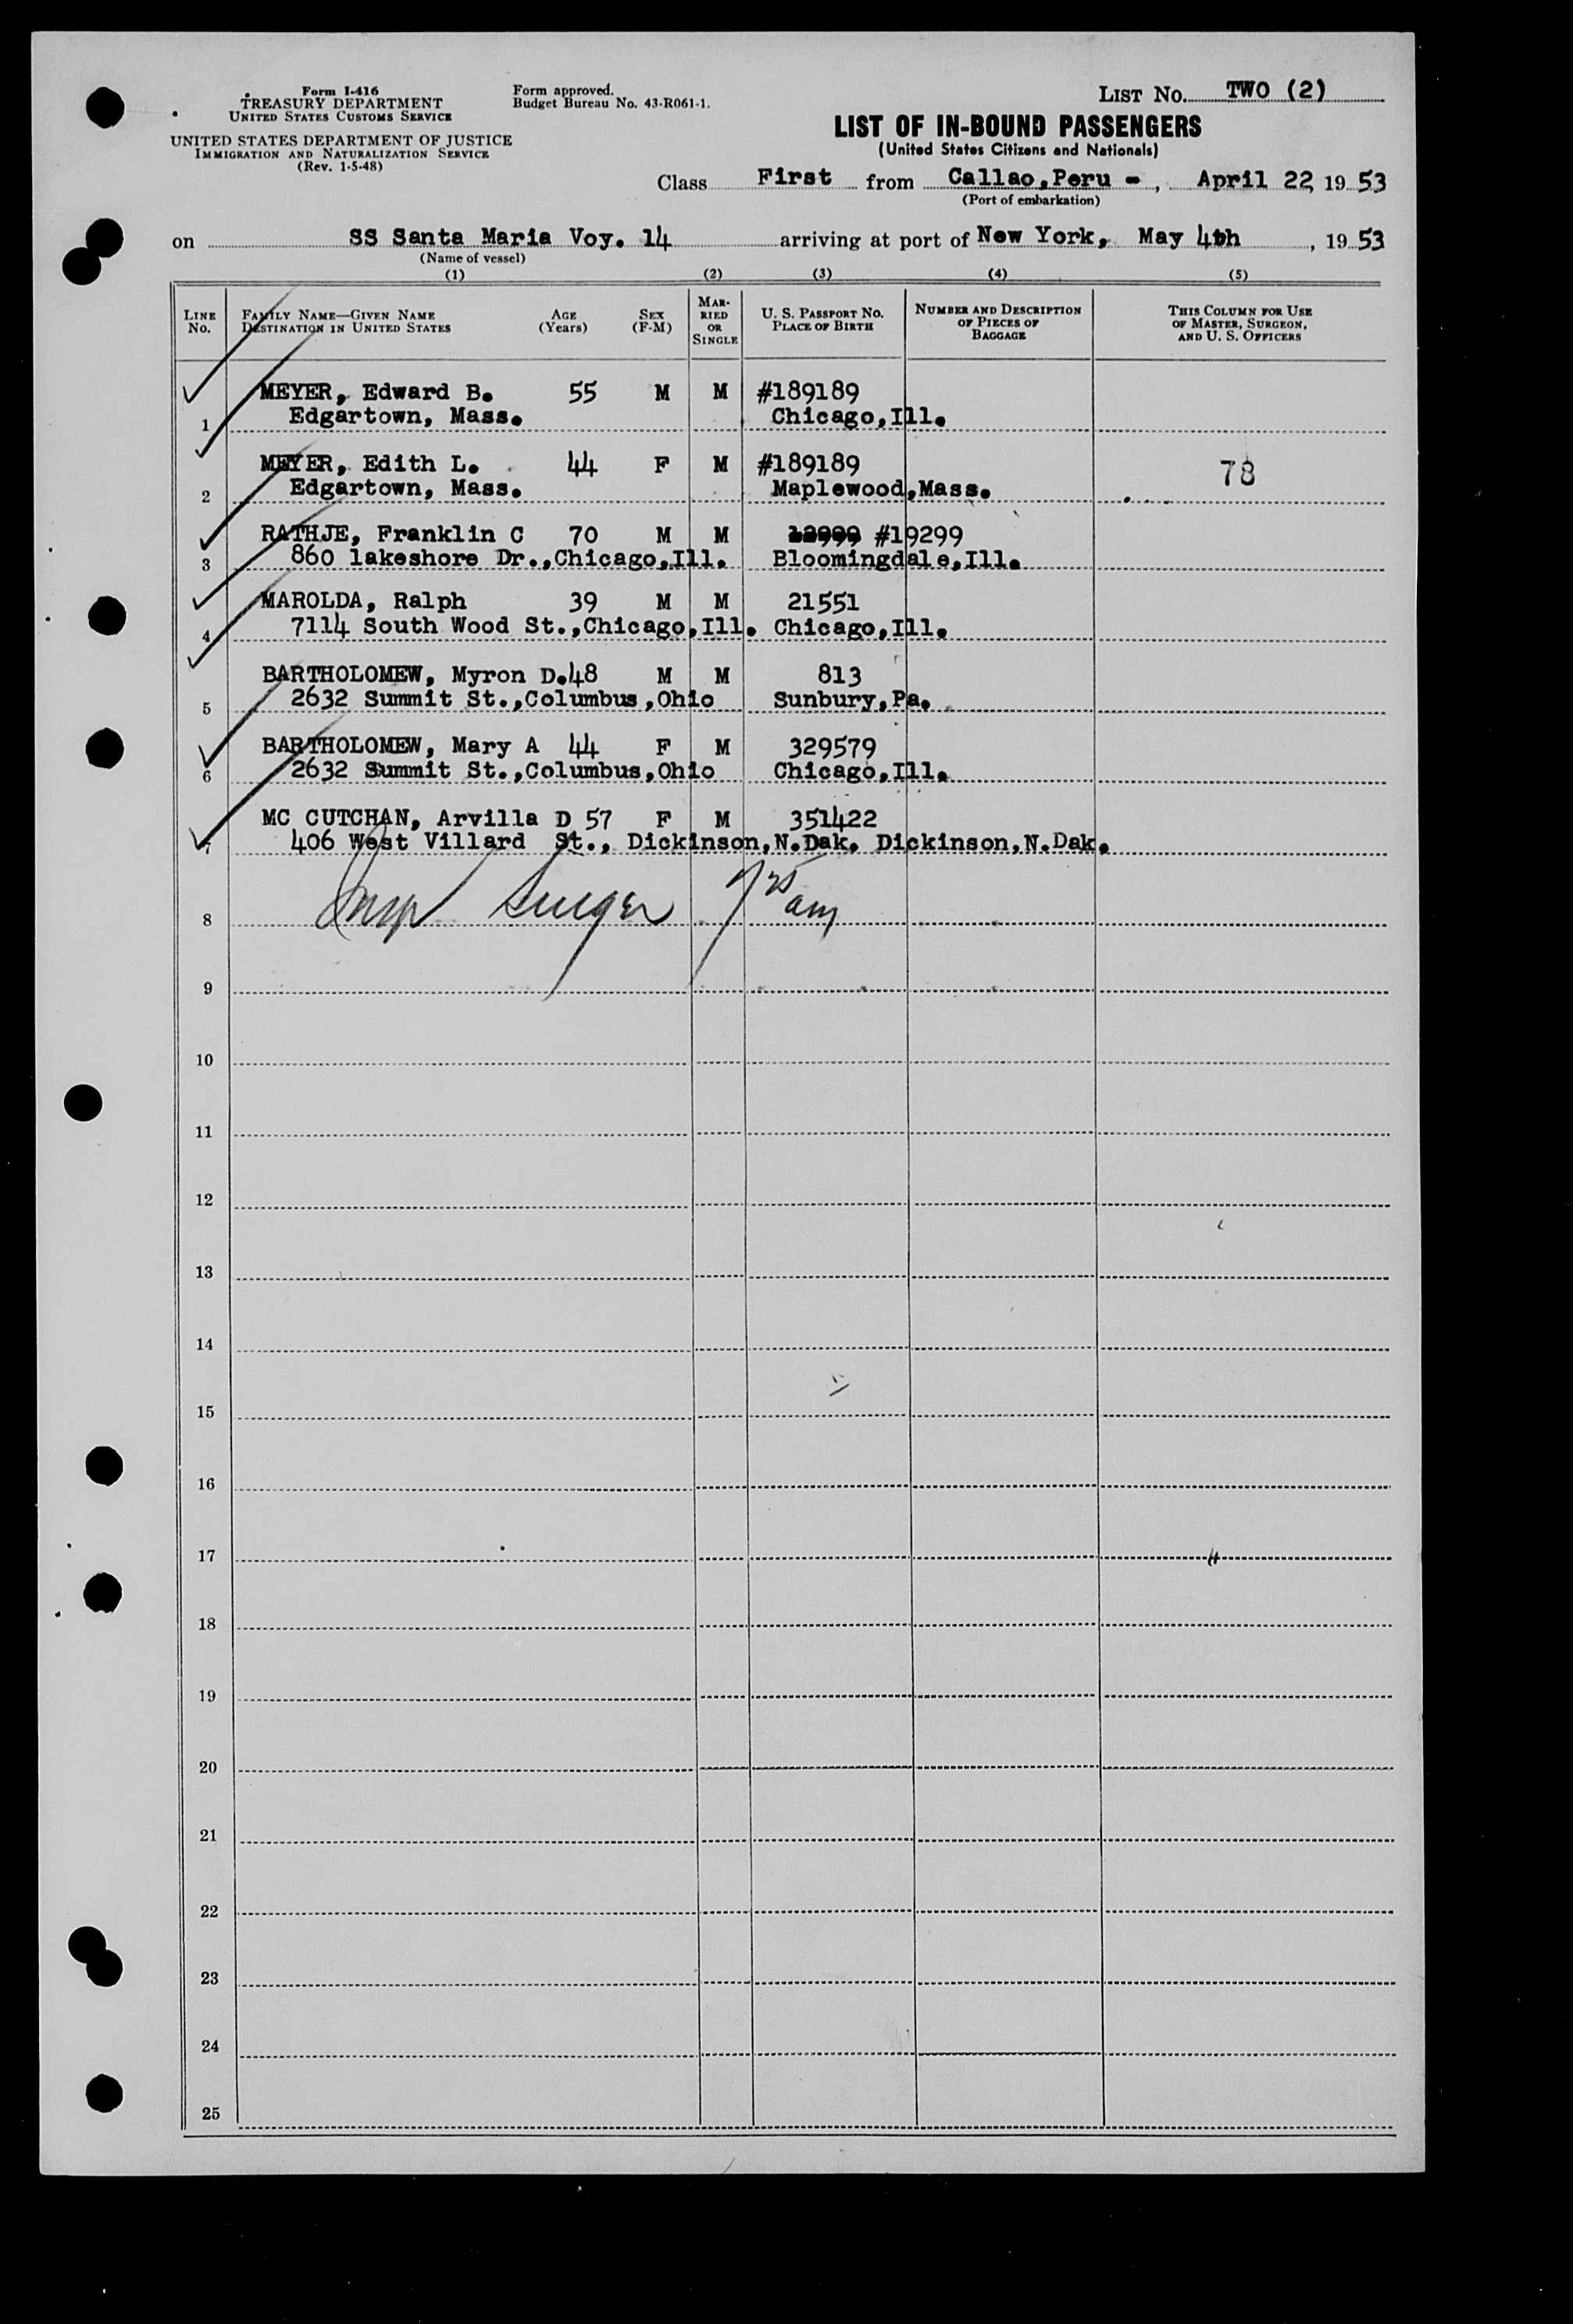 Form I-416
TREASURY DEPARTMENT
UNITED STATES CUSTOMS SERVICE
UNITED STATES DEPARTMENT OF JUSTICE
IMMIGRATION AND NATURALIZATION SERVICE
(Rev. 1-5-48)
Form approved.
Budget Bureau No. 43-R061-1.
LIST NO. TWO (2)
LIST OF IN-BOUND PASSENGERS
(United States Citizens and Nationals)
Class First from Callao,Peru - , April 22, 19 53
(Port of embarkation)
on SS Santa Maria Voy. 14 arriving at port of New York, May 4th , 19 53
(Name of vessel)
(1) (2) (3) (4) (5)
LINE No. FAMILY NAME—GIVEN NAME DESTINATION IN UNITED STATES AGE (Years) SEX (F-M) MARRIED OR SINGLE U. S. PASSPORT NO. PLACE OF BIRTH NUMBER AND DESCRIPTION OF PIECES OF BAGGAGE THIS COLUMN FOR USE OF MASTER, SURGEON, AND U. S. OFFICERS
MEYER, Edward B. 55 M M #189189
1 Edgartown, Mass. Chicago,Ill.
MEYER, Edith L. 44 F M #189189 78
2 Edgartown, Mass. Maplewood,Mass.
RATHJE, Franklin C 70 M M #19299
3 860 lakeshore Dr.,Chicago,Ill. Bloomingdale,Ill.
MAROLDA, Ralph 39 M M 21551
4 7114 South Wood St.,Chicago,Ill. Chicago,Ill.
BARTHOLOMEW, Myron D.48 M M 813
5 2632 Summit St.,Columbus,Ohio Sunbury,Pa.
BARTHOLOMEW, Mary A 44 F M 329579
6 2632 Summit St.,Columbus,Ohio Chicago,Ill.
MC CUTCHAN, Arvilla D 57 F M 351422
7 406 West Villard St., Dickinson,N.Dak. Dickinson,N.Dak.
8
9
10
11
12
13
14
15
16
17
18
19
20
21
22
23
24
25